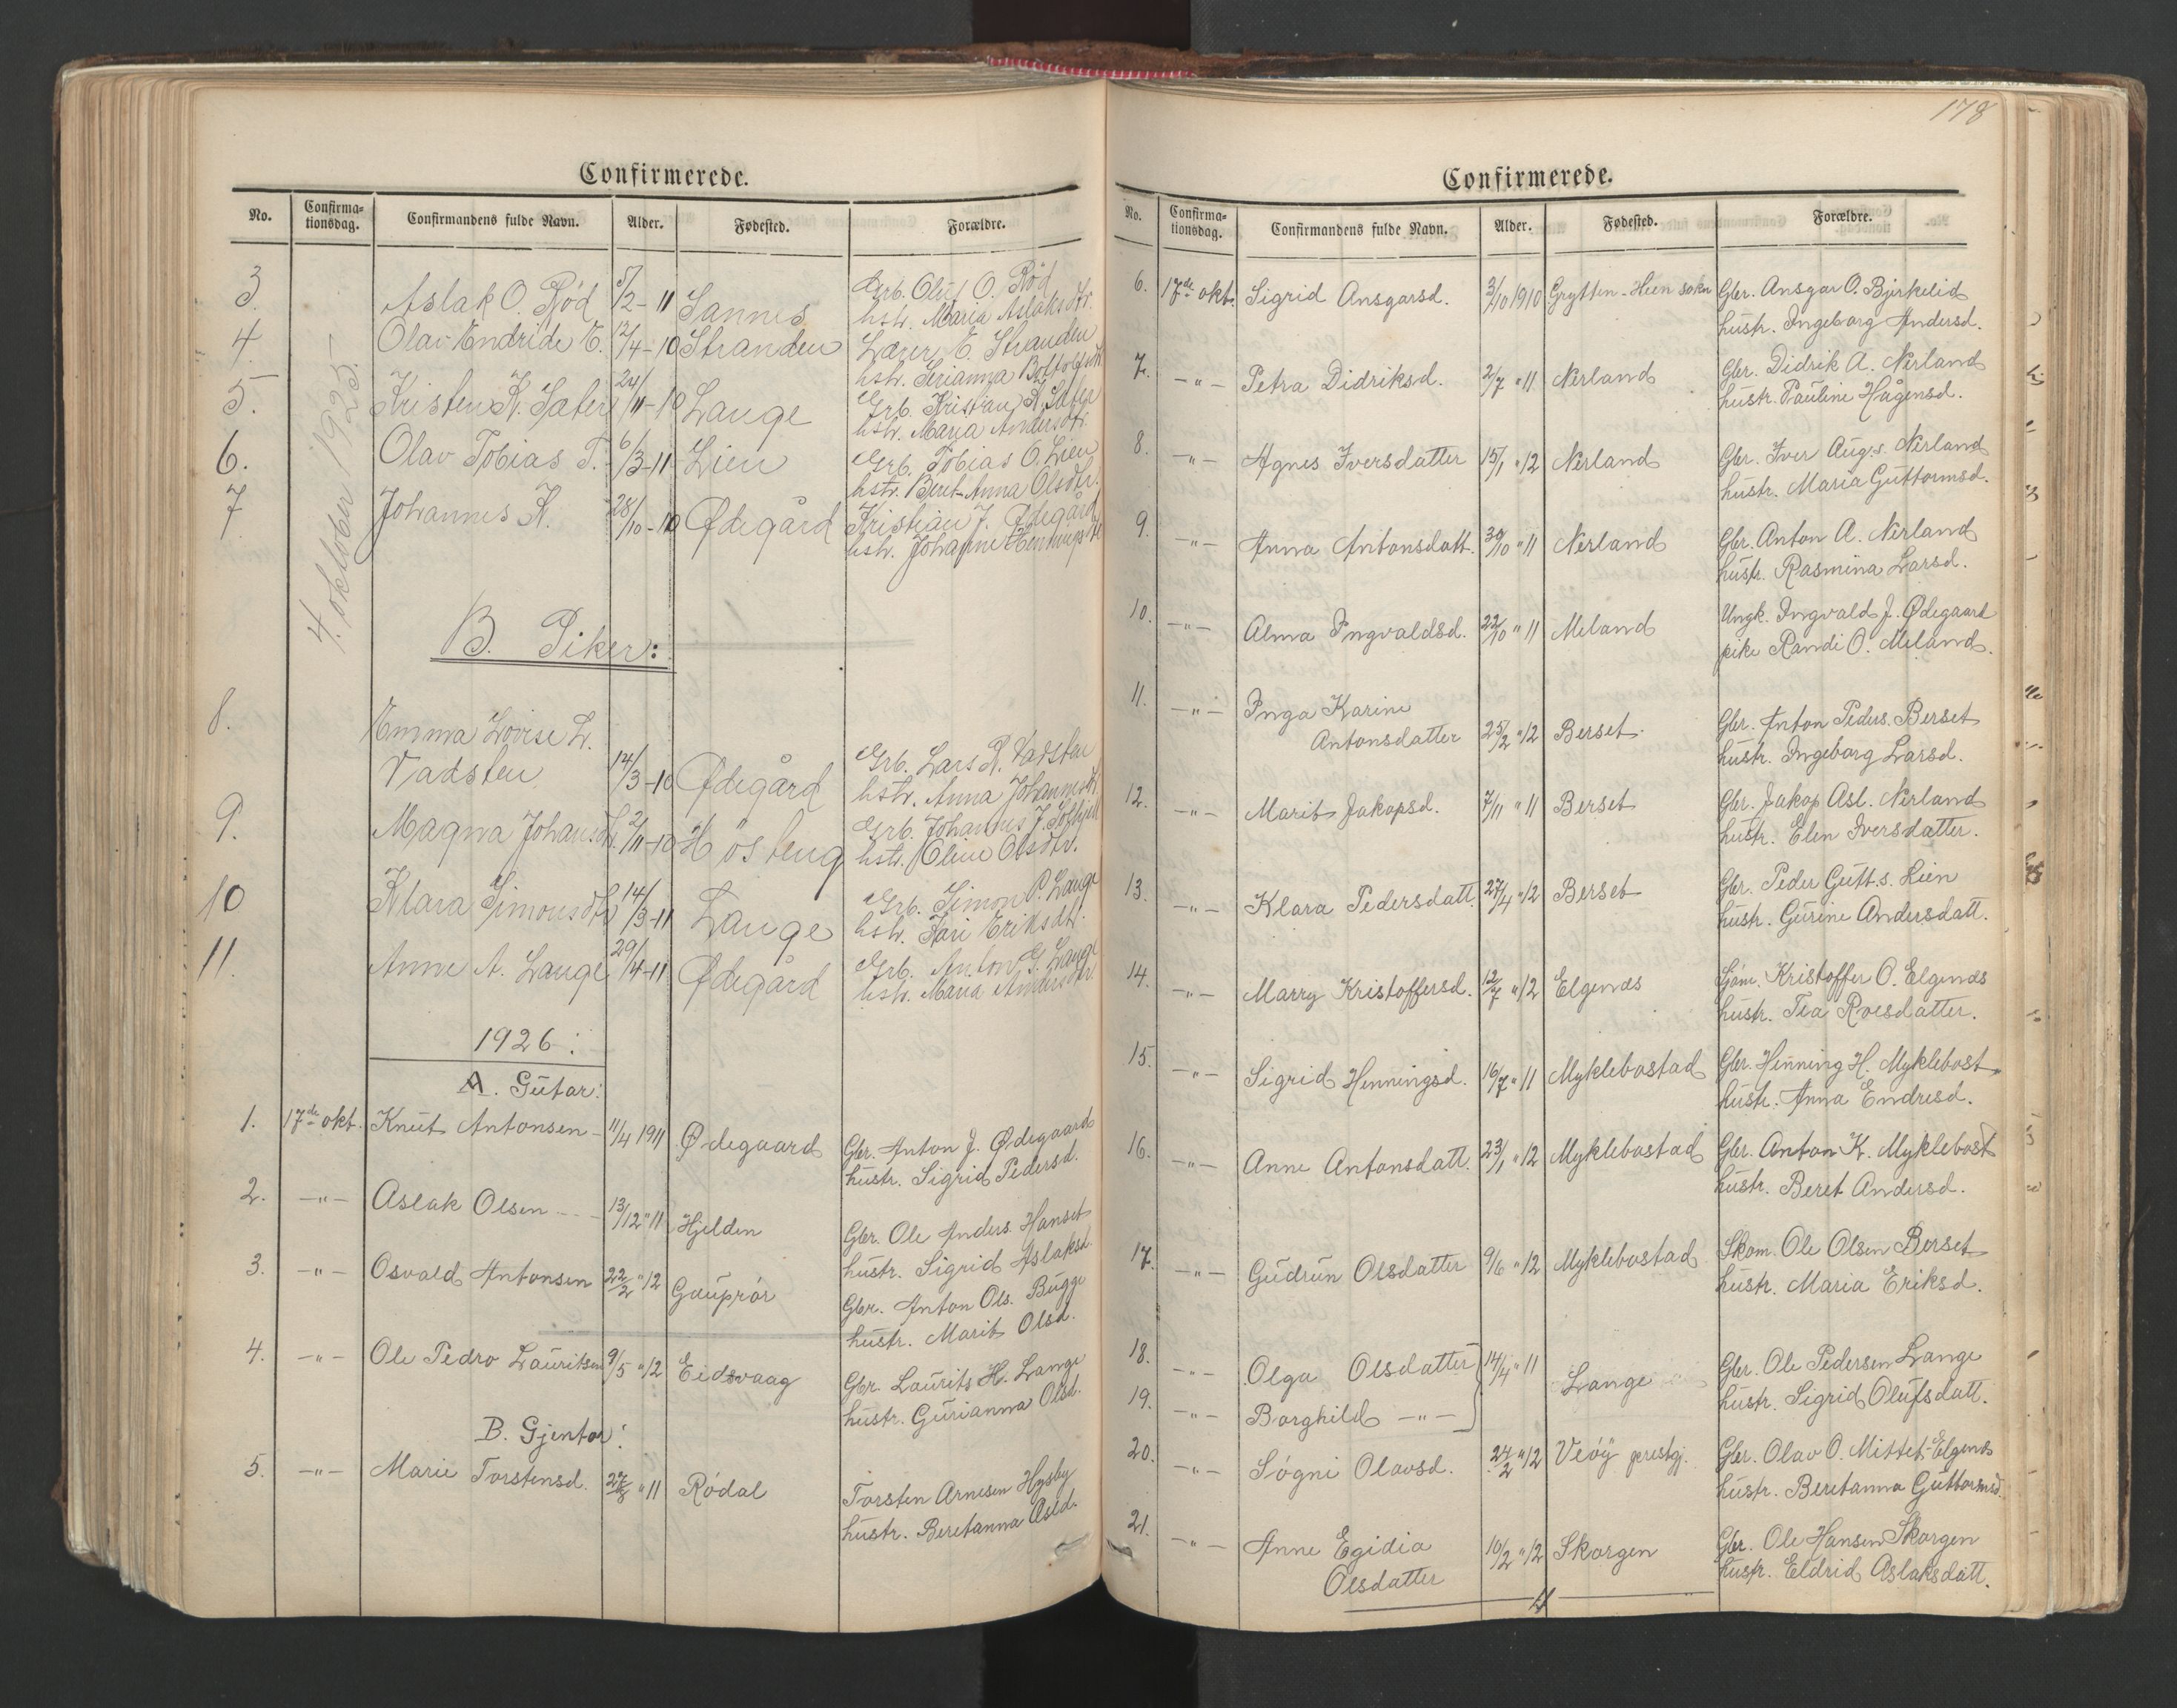 Confirmerede.
No. Confirma-tionsdag. Confirmandens fulde Navn. Alder. Fødested. Forældre.
4. oktober 1925
3. Aslak O. Röd 5/2-11 Sannes Grb. Oluf O. Röd
hstr. Maria Aslaksdtr.
4. Olav Endride E. 12/4-10 Stranden Lærer E. Stranden
hstr. Serianna
5. Kristen K. Sæter 24/11-10 Lange Grb. Kristian K. Sæter
hstr. Maria Andersdtr.
6. Olav Tobias T. 6/3-11 Lien Grb. Tobias O. Lien
hstr. Beret-Anna Olsdtr.
7. Johannes K. 28/10-10 Ødegård Kristian J. Ødegård
hstr. Johanne Henningsdtr
B. Piker:
8. Emma Lovise L.
Vadsten 14/3-10 Ødegård Grb. Lars R. Vadsten
hstr. Anna Johannesdtr.
9. Magna Johansdtr. 2/11-10 Hösteng Grb. Johannes J.
hstr. Oline Olsdtr.
10 Klara Simonsdtr 14/3-11 Lange Grb. Simon P. Lange
hstr. Kari Eriksdtr.
11. Anne A. Lange 29/4-11 Ødegård Grb. Anton G. Lange
hstr. Maria Andersdtr.
1926:
A. Gutar:
1. 17de okt. Knut Antonsen - 11/4 1911 Ødegaard Gbr. Anton J. Ødegaard
hustr. Sigrid Pedersd.
2. -"- Aslak Olsen - - - 13/12 " 11 Hjelden Gbr. Ole Anders. Hanset
hustr. Sigrid Aslaksd.
3. -"- Osvald Antonsen 22/2 " 12 Gauprør Gbr. Anton Ols. Bugge
hustr. Marit Olsd.
4. -"- Ole Pedro Lauritsen 9/5 " 12 Eidsvaag Gbr. Laurits H. Lange
hustr. Gurianna Olsd.
B. Gjentor:
5. -"- Marie Torstensd. 27/8 " 11 Rödal Torsten Arnesen Hysby
hustr. Beretanna Olsd.
178
Confirmerede.
No. Confirma-tionsdag. Confirmandens fulde Navn. Alder. Fødested. Forældre.
6. 17de okt. Sigrid Ansgarsd. 3/10 1910 Grytten - Heen sokn Gbr. Ansgar O. Bjørkelid
hustr. Ingeborg Andersd.
7. -"- Petra Didriksd. 2/7 " 11 Nerland Gbr. Didrik A. Nerland
hustr. Pauline Hågensd.
8. -"- Agnes Iversdatter 15/1 " 12 Nerland Gbr. Iver Aug.s. Nerland
hustr. Maria Guttormsd.
9. -"- Anna Antonsdatt. 30/10 " 11 Nerland Gbr. Anton A. Nerland
hustr. Rasmina Larsd.
10. -"- Alma Ingvaldsd. 22/10 " 11 Meland Ungk. Ingvald J. Ødegaard
pike Randi O. Meland.
11. -"- Inga Karine
Antonsdatter 25/2 " 12 Berset Gbr. Anton Peders. Berset
hustr. Ingeborg Larsd.
12. -"- Marit Jakopsd. 7/11 " 11 Berset Gbr. Jakop Asl. Nerland
hustr. Elen Iversdatter.
13. -"- Klara Pedersdatt. 27/4 " 12 Berset Gbr. Peder Gutt.s. Lien
hustr. Gurine Andersdatt.
14. -"- Marry Kristoffersd. 12/7 " 12 Elgenæs Sjöm. Kristoffer O. Elgenæs
hustr. Tea Roesdatter.
15. -"- Sigrid Henningsd. 16/7 " 11 Myklebostad Gbr. Henning H. Myklebost
hustr. Anna Endresd.
16. -"- Anne Antonsdatt. 23/1 " 12 Myklebostad Gbr. Anton K. Myklebost
hustr. Beret Andersd.
17. -"- Gudrun Olsdatter 9/6 " 12 Myklebostad Skom. Ole Olsen Berset
hustr. Maria Eriksd.
18. -"- Olga Olsdatter 14/4 " 11 Lange Gbr. Ole Pedersen Lange
19. -"- Borghild -"- hustr. Sigrid Olufsdatt.
20. -"- Søgni Olavsd. 24/2 " 12 Veöy prestgj. Gbr. Olav O. Mittet-Elgenæs
hustr. Beretanna Guttormsd.
21. -"- Anne Egidia
Olsdatter 16/2 " 12 Skorgen Gbr. Ole Hansen Skorgen
hustr. Eldrid Aslaksdatt.